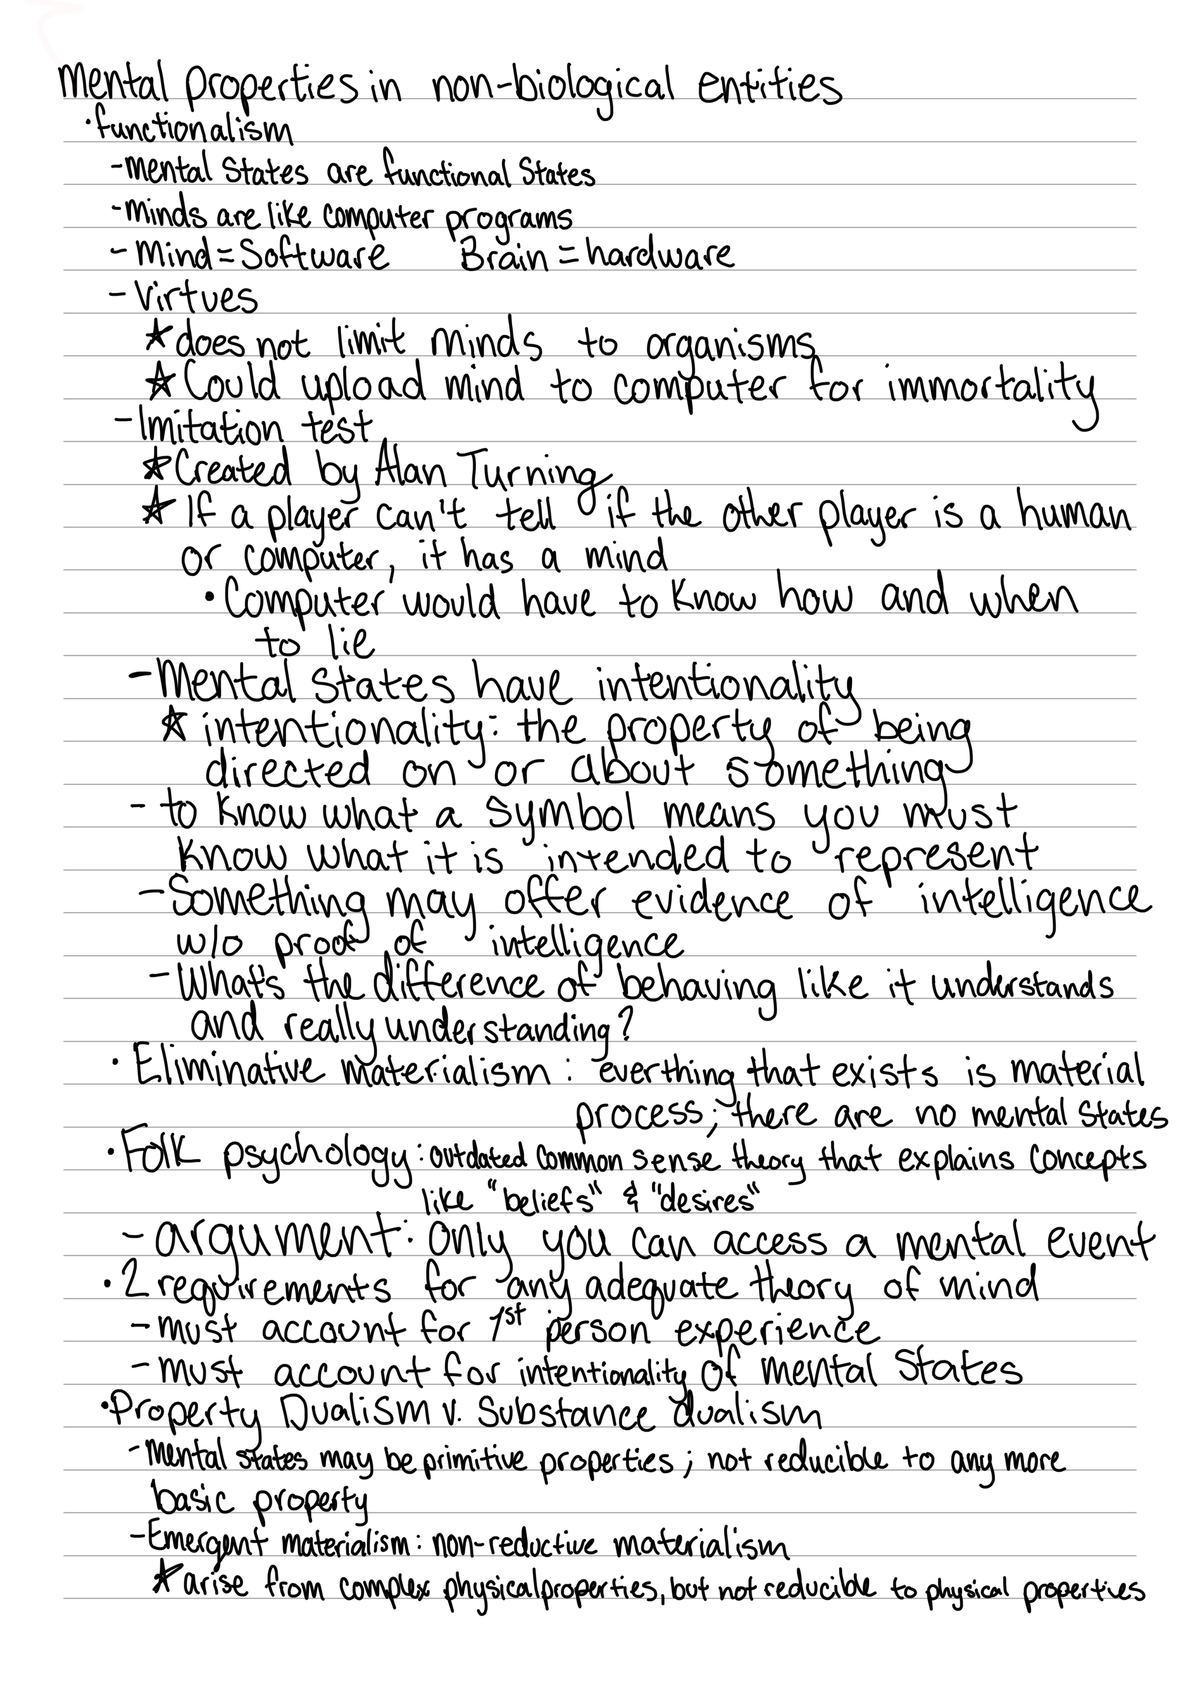 Mental properties in non-biological entities
• functionalism
- Mental States are functional States
- Minds are like computer programs
- Mind = Software Brain = hardware
- Virtues
☆ does not limit minds to organisms
☆ Could upload mind to computer for immortality
- Imitation test
☆ Created by Alan Turning
☆ If a player can't tell if the other player is a human
or computer, it has a mind
• Computer would have to know how and when
to lie
- Mental States have intentionality
☆ intentionality: the property of being
directed on or about something
- to know what a symbol means you must
know what it is intended to represent
- Something may offer evidence of intelligence
w/o proof of intelligence
- What's the difference of behaving like it understands
and really understanding?
• Eliminative materialism: everthing that exists is material
process; there are no mental States
• Folk psychology: outdated common sense theory that explains concepts
like "beliefs" & "desires"
- argument: only you can access a mental event
• 2 requirements for any adequate theory of mind
- must account for 1st person experience
- must account for intentionality of mental States
• Property Dualism v. Substance dualism
- Mental states may be primitive properties; not reducible to any more
basic property
- Emergent materialism: non-reductive materialism
☆ arise from complex physical properties, but not reducible to physical properties